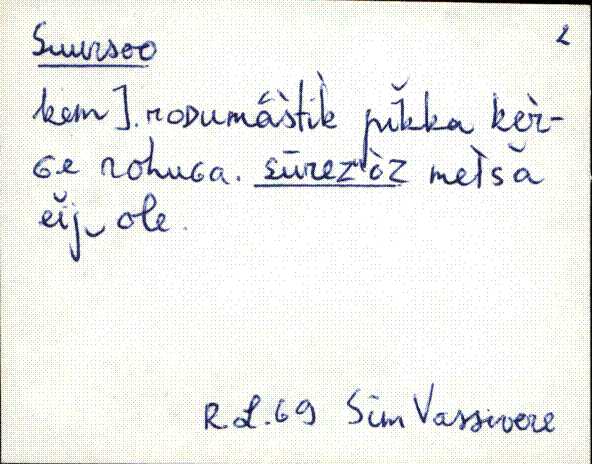 Suursoo 2
kem]. roDumàstìk pĭkka kèr-
G.e rohuGa. sūrez òz metsă
eĭj ole.
R L. 69 Sim Vassivere